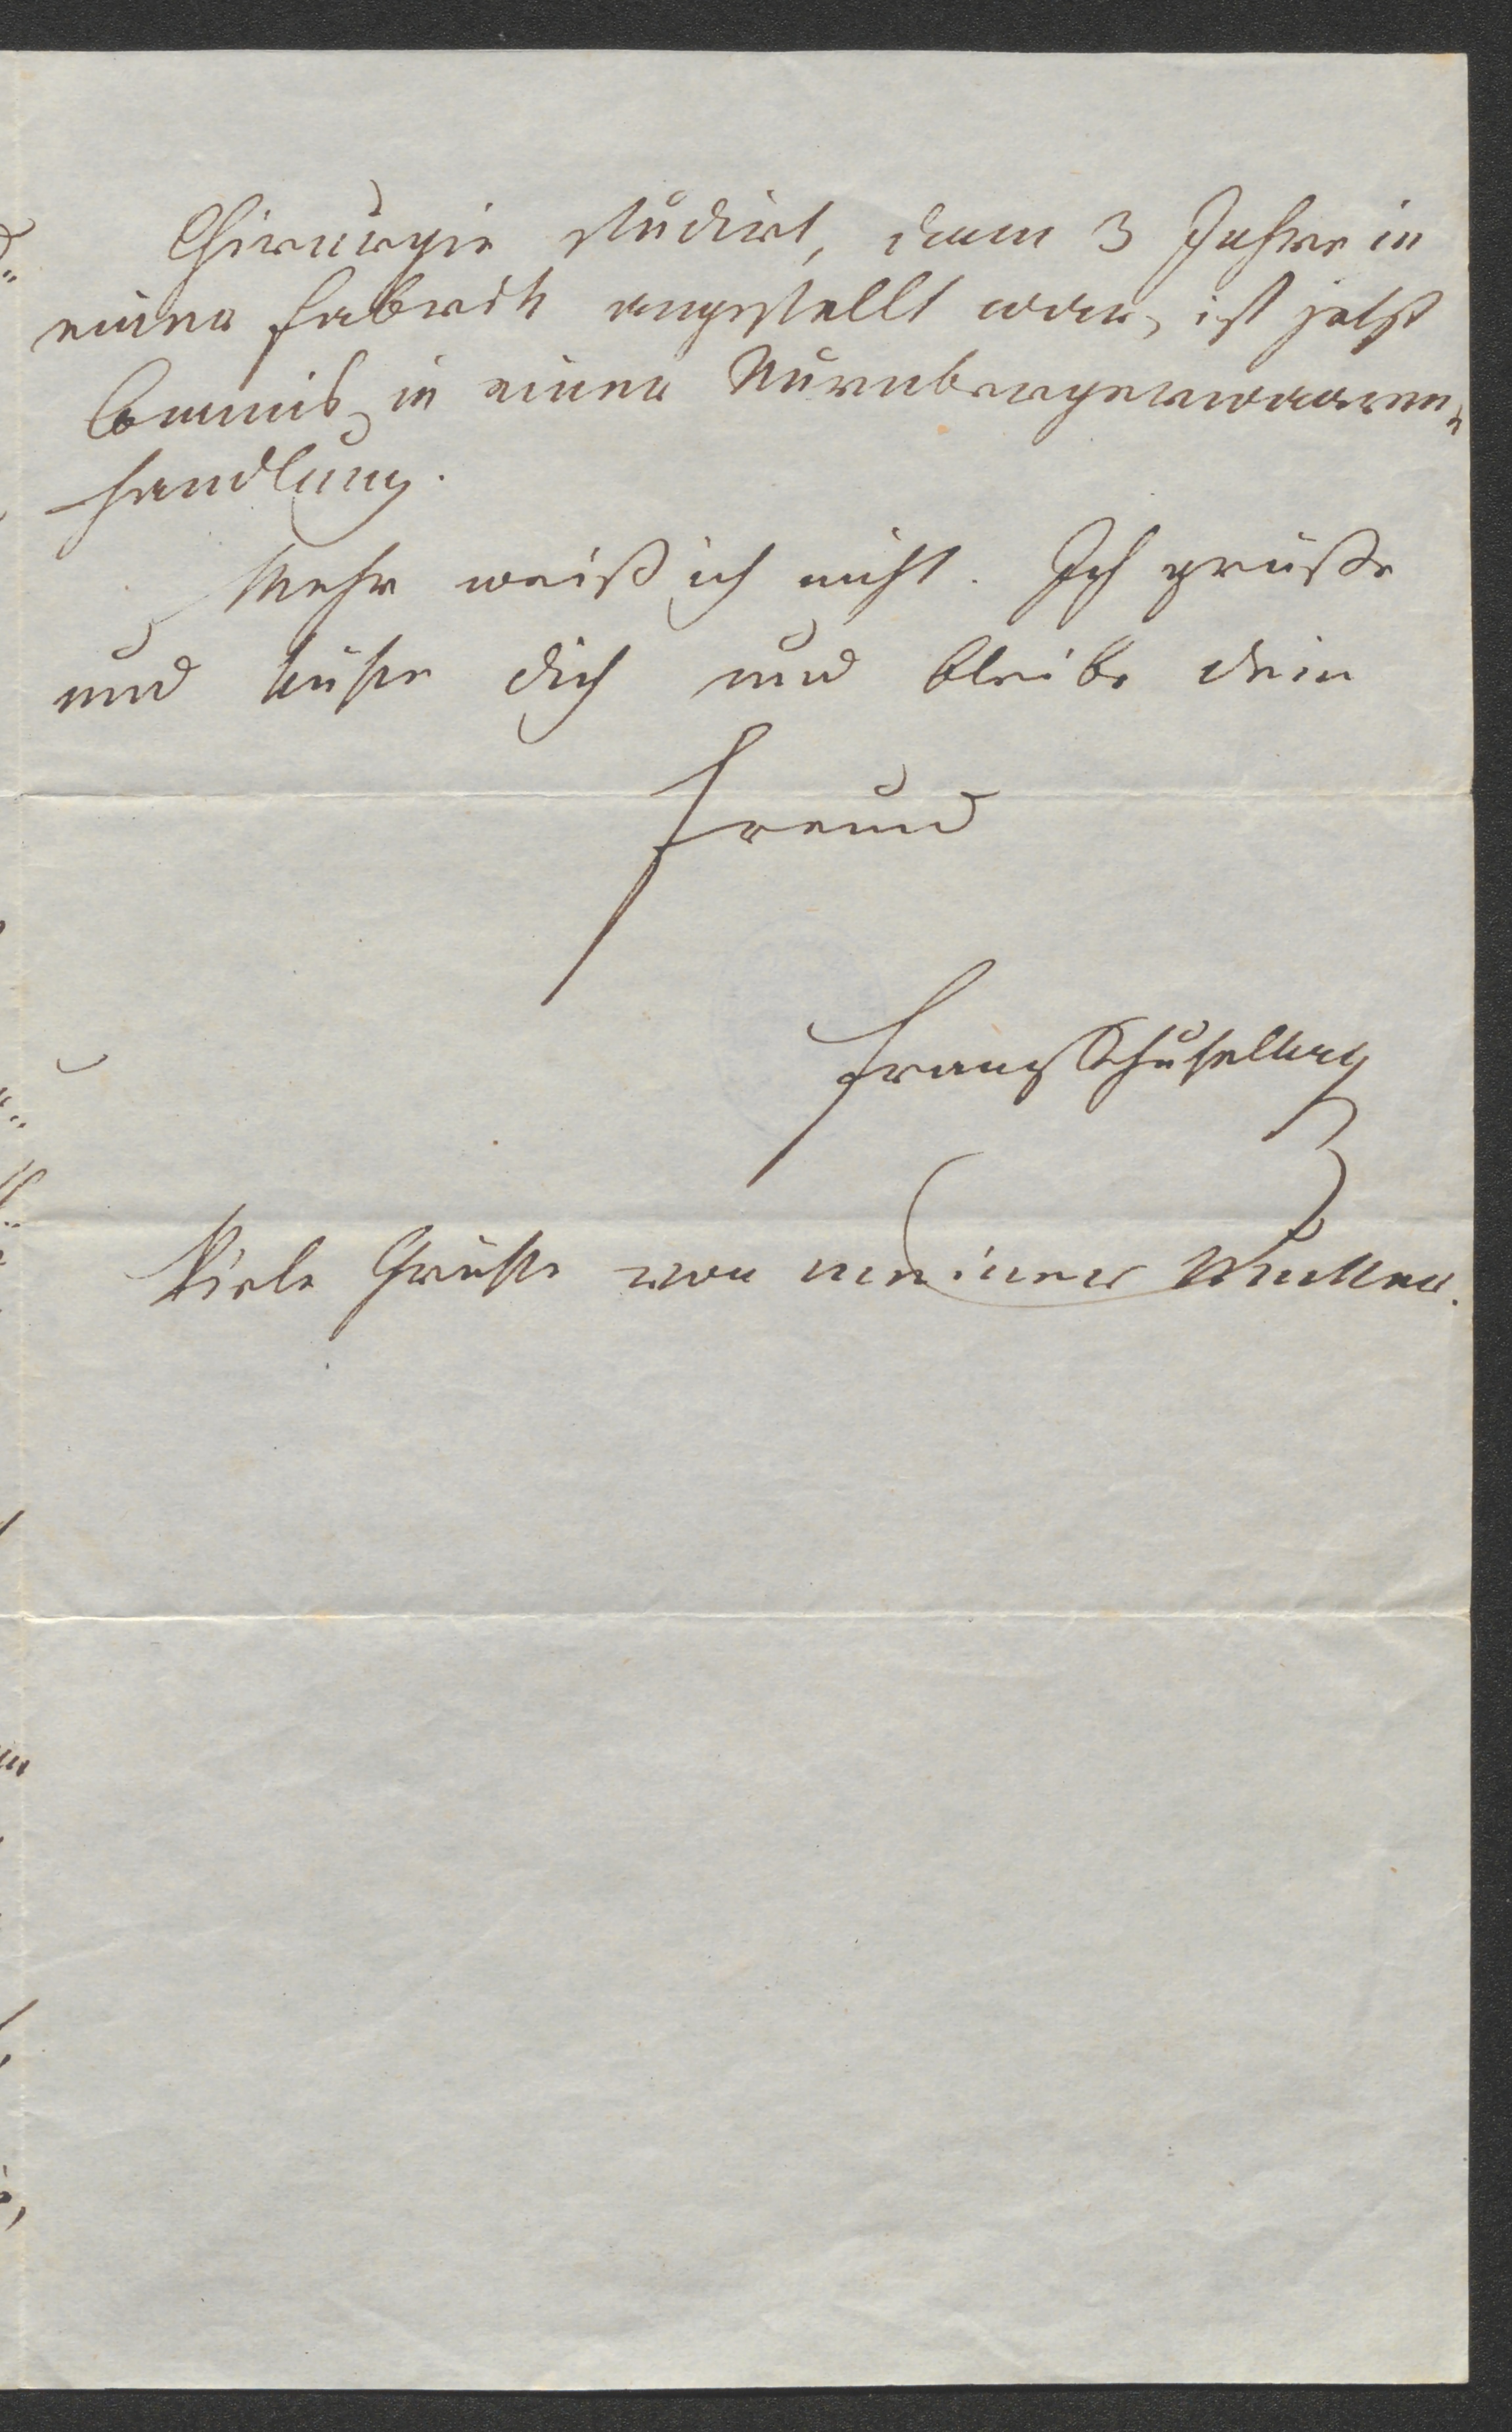 Chirurgie studirt, dann 3 Jahre in
einer Fabrik angestellt war, ist jetzt
Commis in einer Nürnbergerwaaren-
handlung.
Mehr weiß ich nicht. Ich grüße
und küße dich und bleibe dein
Freund
Franz
Viele Grüße von meiner Mutter.